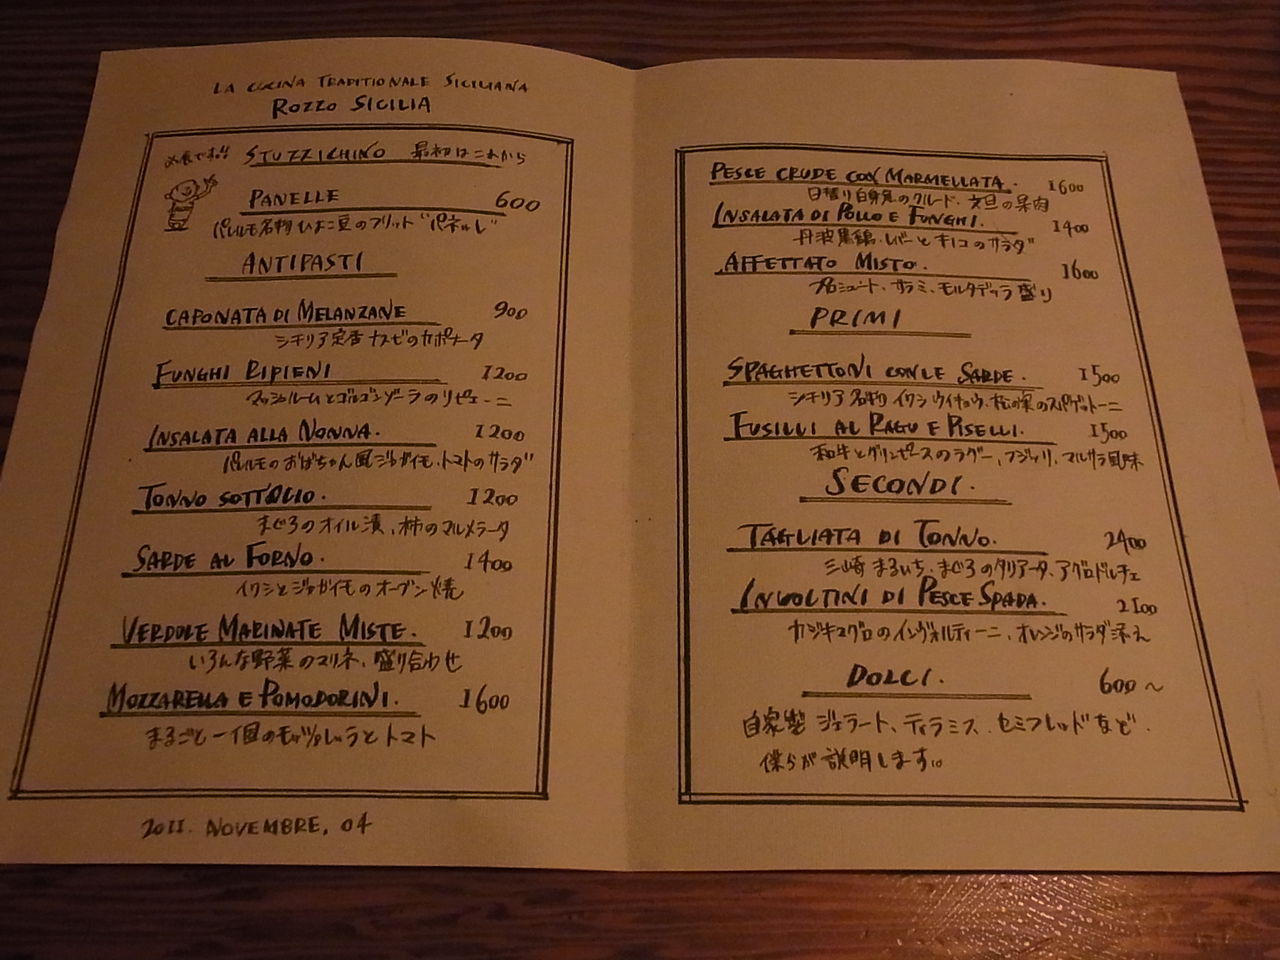 LA CUCINA TRADITIONALE SICILIANA
ROZZO SICILIA
必食です!!
STUZZICHINO 最初はこれから
PANELLE 600
パレルモ名物ひよこ豆のフリット“パネッレ”
ANTIPASTI
CAPONATA DI MELANZANE 900
シチリア定番ナスビのカポナータ
FUNGHI RIPIENI 1200
マッシュルームとゴルゴンゾーラのリピエーニ
INSALATA ALLA NONNA. 1200
パレルモのおばちゃん風ジャガイモ、トマトのサラダ
TONNO SOTTOLIO. 1200
まぐろのオイル漬、柿のマルメラータ
SARDE AL FORNO. 1400
イワシとジャガイモのオーブン焼
VERDULE MARINATE MISTE. 1200
いろんな野菜のマリネ、盛り合わせ
MOZZARELLA E POMODORINI. 1600
まるごと一個のモッツァレッラとトマト
2011. NOVEMBRE, 04
PESCE CRUDE CON MARMELLATA. 1600
日替り白身魚のクルード、文旦の果肉
INSALATA DI POLLO E FUNGHI. 1400
丹波黒鶏、レバーとキノコのサラダ
AFFETTATO MISTO. 1600
プロシュート、サラミ、モルタデッラ盛り
PRIMI
SPAGHETTONI CON LE SARDE. 1500
シチリア名物イワシ、ウイキョウ、松の実のスパゲットーニ
FUSILLI AL RAGU E PISELLI. 1500
和牛とグリンピースのラグー、フジッリ、マルサラ風味
SECONDI.
TAGLIATA DI TONNO. 2400
三崎まるいち、まぐろのタリアータ、アグロドルチェ
INVOLTINI DI PESCE SPADA. 2100
カジキマグロのインヴォルティーニ、オレンジのサラダ添え
DOLCI. 600～
自家製ジェラート、ティラミス、セミフレッドなど.
僕らが説明します。